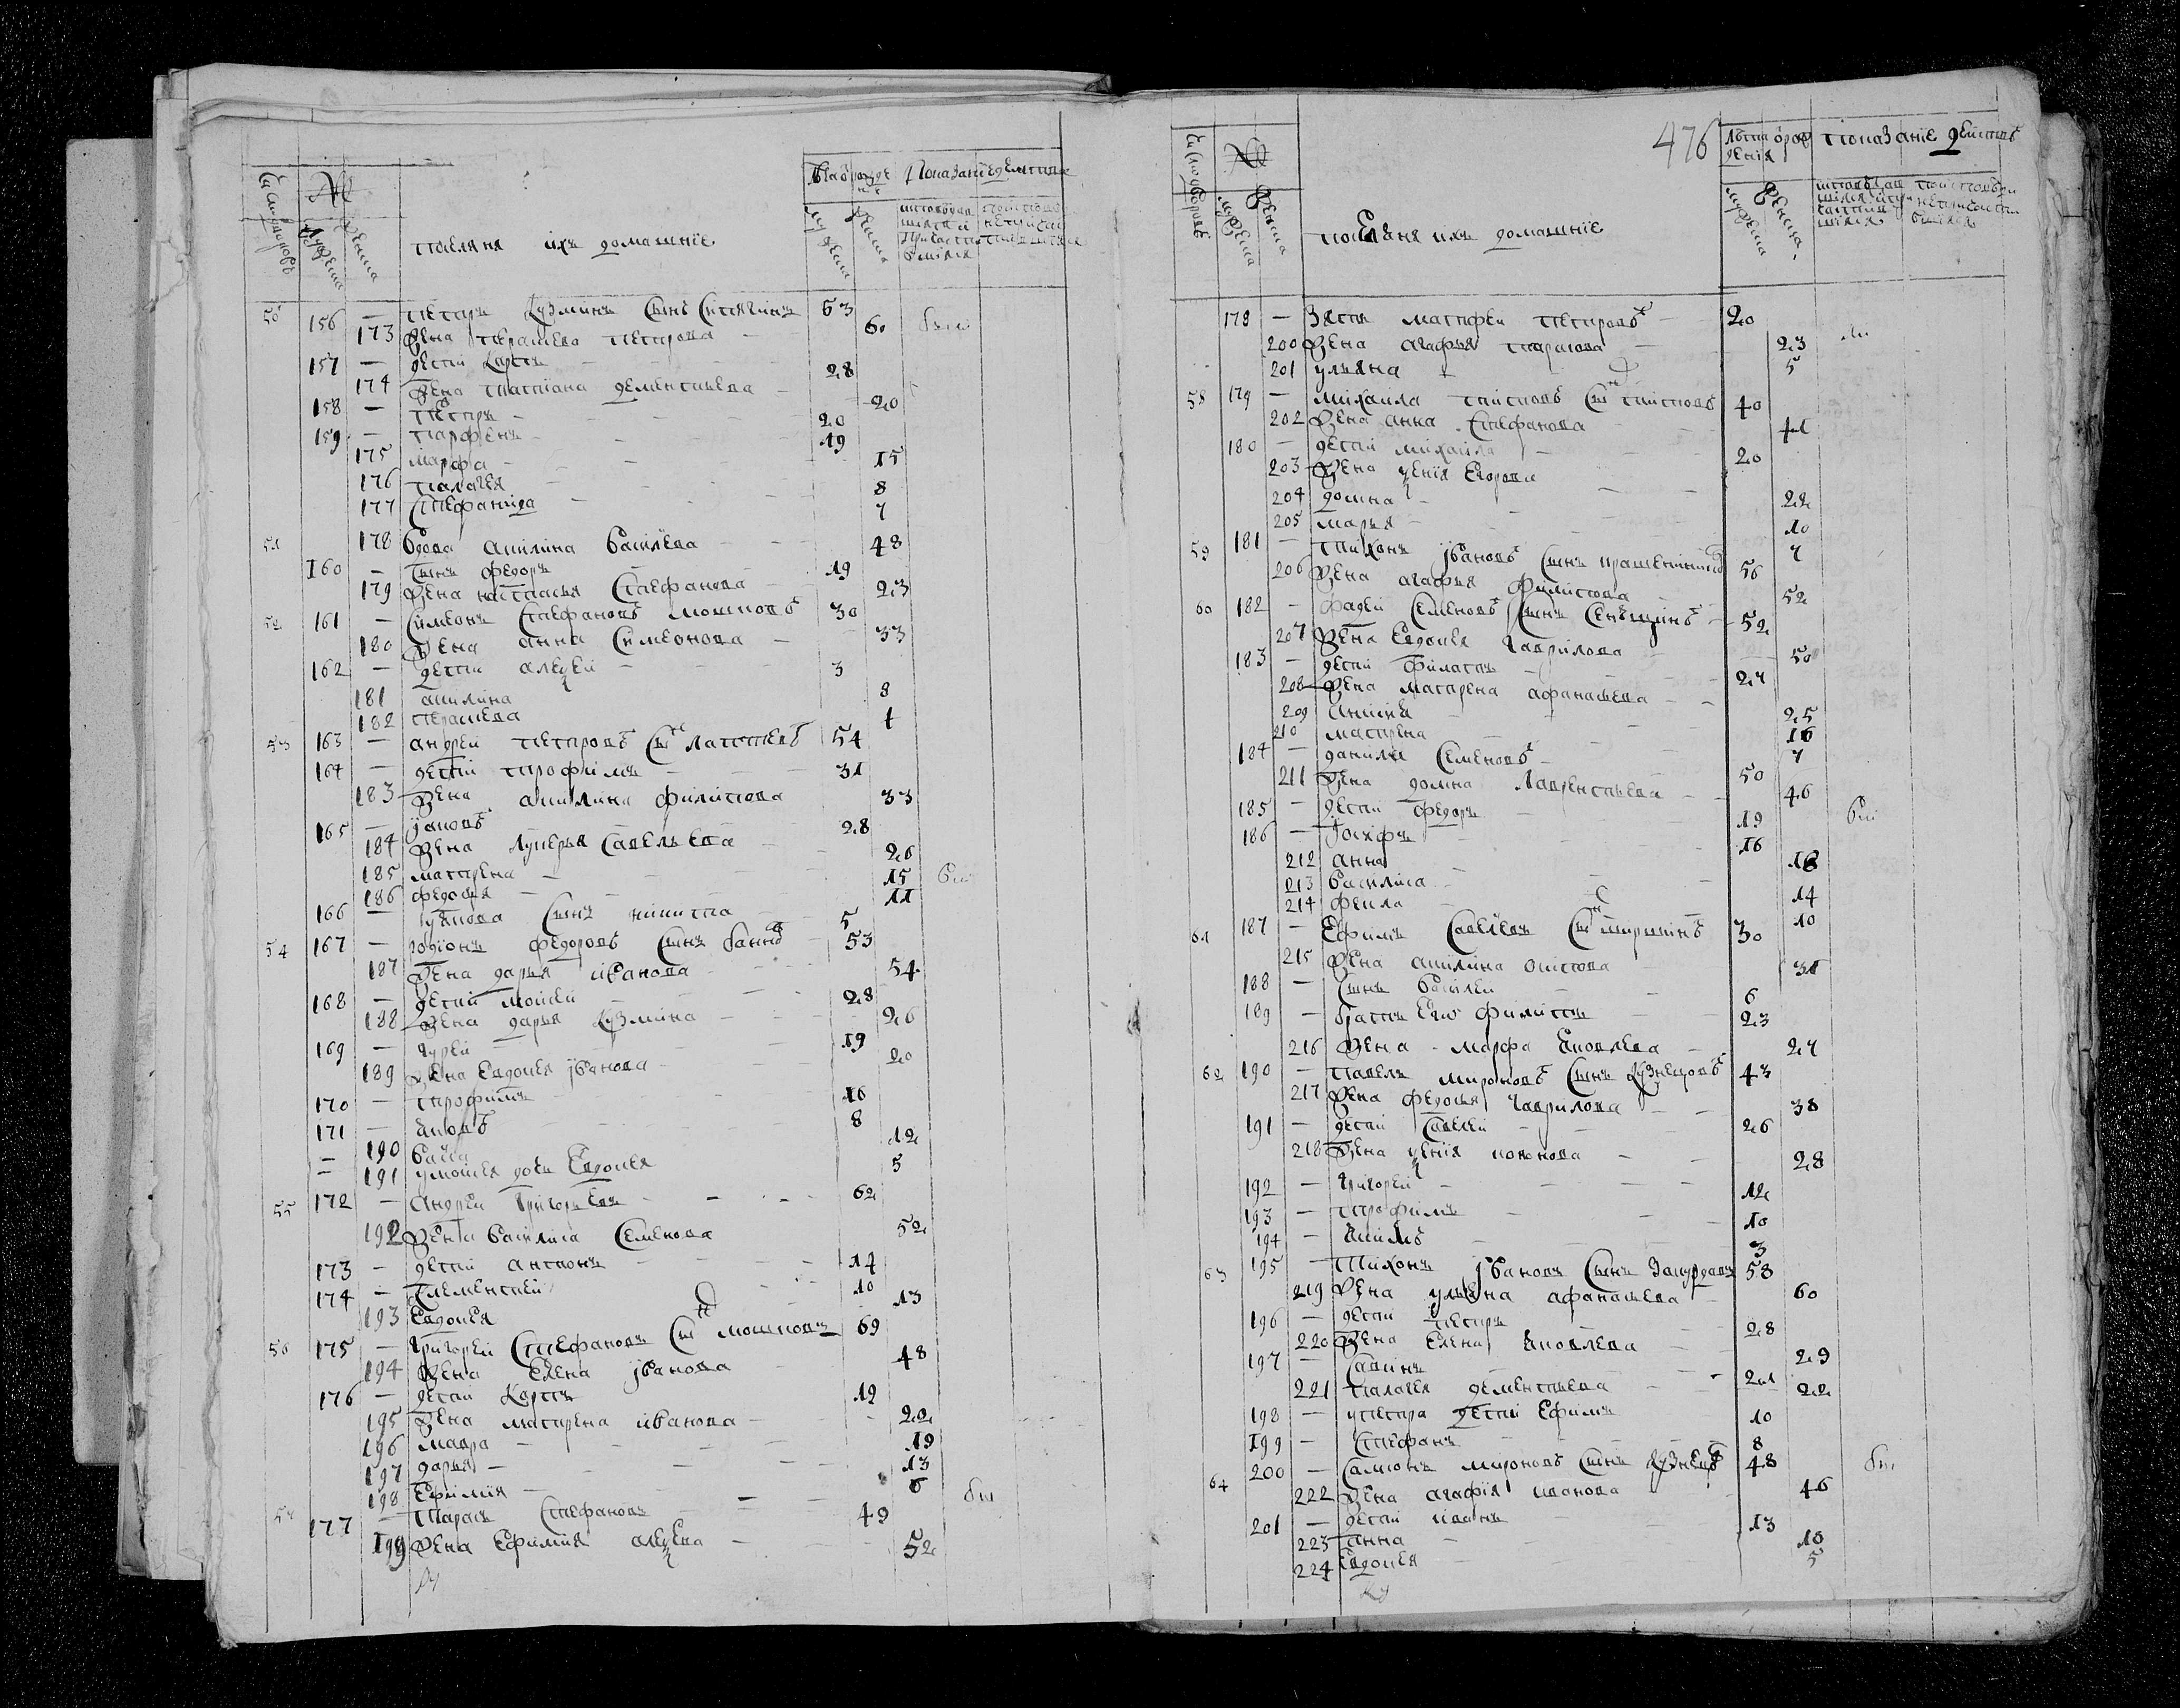 число дворовъ № мужеска женска посѣляня ихъ домашнїе лѣта ѿ рожденія мужеска женска Показанїе дѣйства
50 156 — Петръ Кузминъ сынъ 63
173 жена Парасева Петрова — 60 были
157 — дети Карпъ — 28
174 жена Татиана Дементьева — 20
158 — Петръ — 20
159 — Парфенъ — 19
175 Марфа — 15
176 Палагея — 8
177 Стефанида — 7
51 178 вдова Акилина Василева — 48
160 — сынъ Федоръ — 19
179 жена Настасья Стефанова — 23
52 161 — Симеонъ Стефановъ Мошковъ 30
180 жена Анна Симеонова — 33
162 — дети Алеѯей — 3
181 Акилина 8
182 Парасева 1
53 163 — Андрей Петровъ сынъ 54
164 — дети Трофимъ — 31
183 жена Акилина Филипова 33
165 — Яковъ 28
184 жена Лукерья Савельева — 26
185 Матрена — 15 были
186 Федосья — 11
166 — Якова сынъ Никита 5
54 167 — Родїонъ Федоровъ сынъ 53
187 жена Дарья Иванова — 54
168 — дети Мосей — 28
188 жена Дарья Кузмина — 26
169 — Гурей — 19
189 жена Евдокея Іванова — 20
170 — Трофимъ — 16
171 — Яковъ — 8
190 Васса 12
191 у Мосея дочь Евдокея 5
55 172 — Андрей Григорьевъ — 62
192 жена Василиса Семенова 52
173 — дети Антонъ — 14
174 — Клементей — 10
193 Евдокея 13
56 175 — Григорей Стефановъ сынъ Мошковъ 69
194 жена Елена Іванова — 48
176 — дети Карпъ 19
195 жена Матрена Иванова — 22
196 Мавра — 19
197 Дарья — 13
198 Ефимия — 6
57 177 — Тарасъ Стефановъ — 49 были
199 жена Ефимия Алеѯеева — 52
476
число дворовъ № мужеска женска посѣляня ихъ домашнїе лѣта ѿ рожденія мужеска женска показанїе дѣйствъ
178 — Зять Матфей Петровъ — 20
200 жена Агафья Тарасова — 23
201 Ульяна 5
58 179 — Михайла сынъ 40
202 жена Анна Стефанова — 41
180 — дети Михайла — 20
203 жена Ѯения Егорова — 22
204 Домна — 10
205 Марья — 7
59 181 — Тихонъ Івановъ сынъ 56
206 жена Агафья Филипова — 52
60 182 — Фадей Семеновъ сынъ 52
207 жена Евдокея Гаврилова — 50
183 — дети Филатъ — 27
208 жена Матрена Афанасьева — 25
209 Анисья 16
210 Матрена — 7
184 — Данила Семеновъ — 50
211 жена Домна Лаврентьева — 46
185 — дети Федоръ — 19
186 — Іосифъ — 16
212 Анна 18
213 Василиса — 14
214 Фекла — 10
61 187 — Ефимъ Савелевъ сынъ 30
215 жена Акилина Осипова — 31
188 — сынъ Василей — 6
189 — братъ Его Филипъ — 23
216 жена Марфа Яковлева — 27
62 190 — Павелъ Мироновъ сынъ Кузнецовъ 43
217 жена Федосья Гаврилова — 38
191 — дети Савелей — 26
218 жена Ѯения — 28
192 — Григорей — 12
193 — Трофимъ — 10
194 — Якимъ — 3
63 195 — Тихонъ Івановъ сынъ 58
219 жена Ульяна Афанасьева — 60
196 — дети Петръ — 28
220 жена Елена Яковлева — 29
197 — Савинъ — 21
221 Палагея Дементьева — 22
198 — у Петра дети Ефимъ 10
199 — Стефанъ — 8
64 200 — Самсонъ Мироновъ сынъ Кузнецовъ 48
222 жена Агафїя Иванова 46
201 — дети Иванъ — 13
223 Анна — 10
224 Евдокея — 5